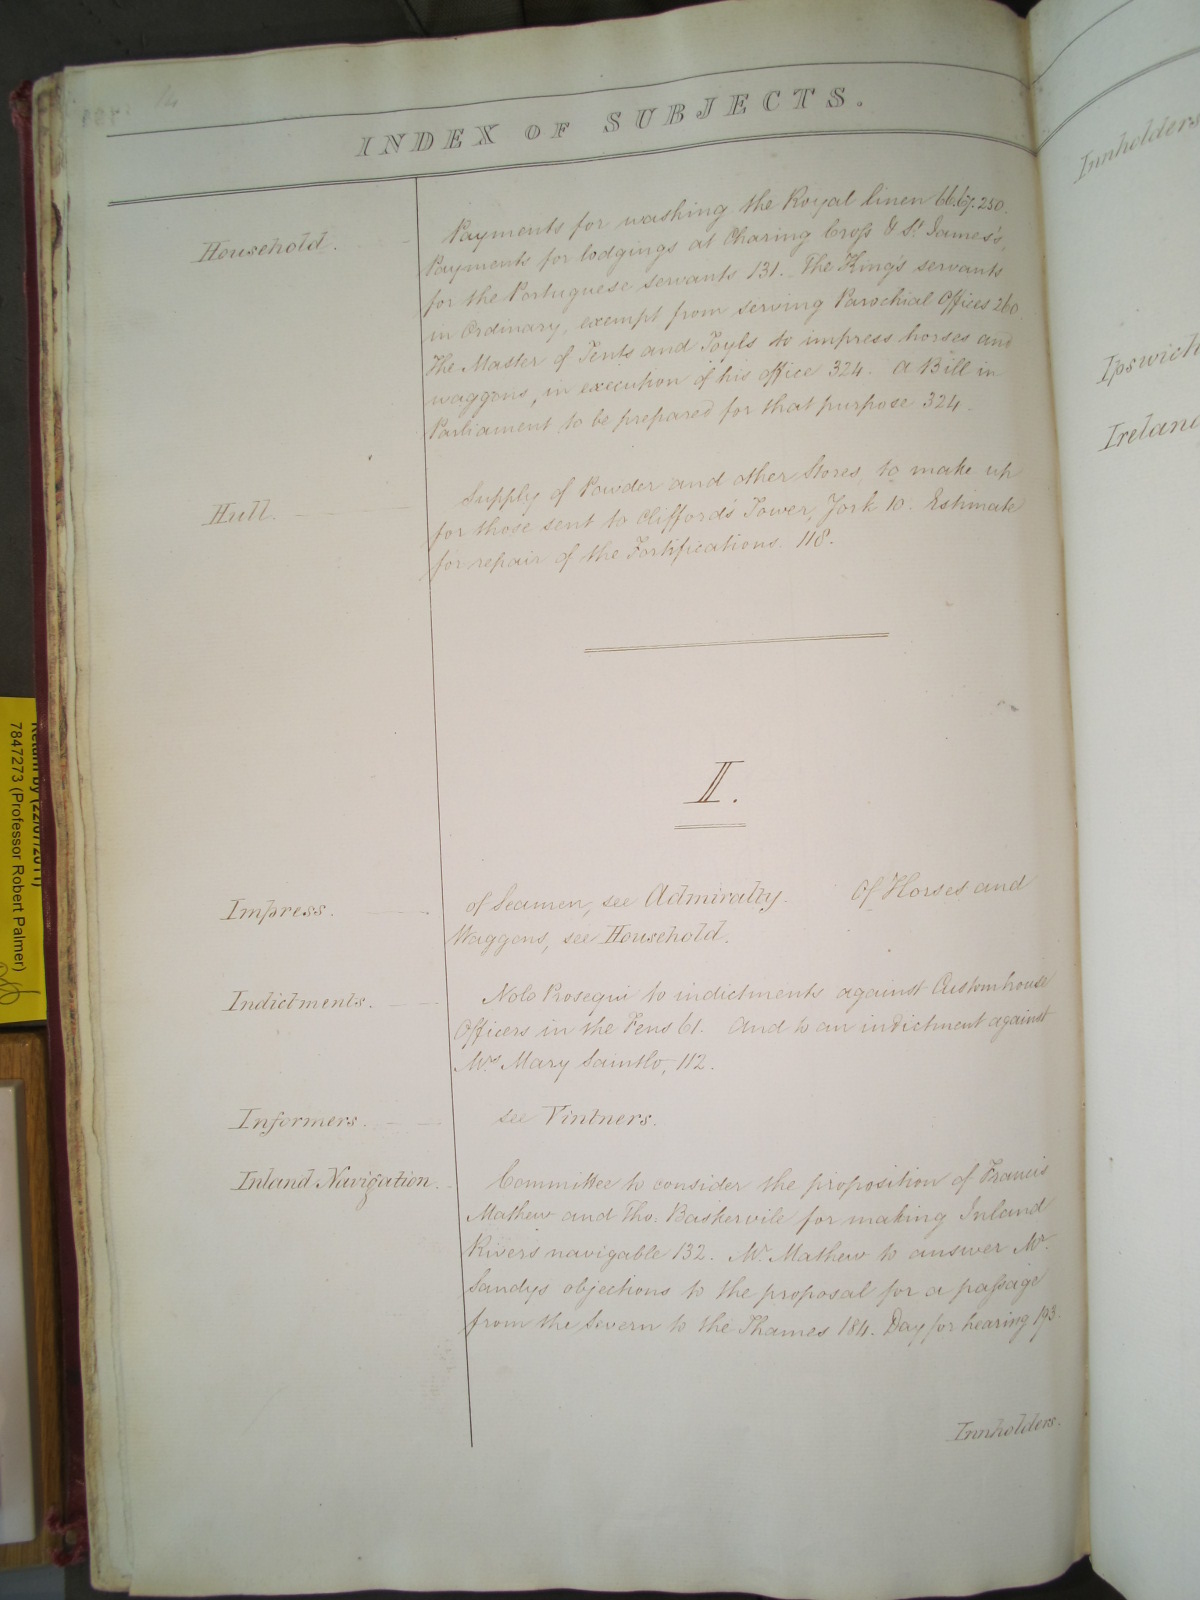 INDEX OF SUBJECTS.
Household.
Payments for washing the Royal linen 66.67.250.
Payments for lodgings at Charing Cross & St. James's,
for the Portuguese servants 131. The King's servants
in Ordinary, exempt from serving Parochial Offices 260.
The Master of Tents and Toyls to impress horses and
waggons, in execution of his office 324. A Bill in
Parliament to be prepared for that purpose 324.
Hull.
Supply of Powder and other Stores, to make up
for those sent to Clifford's Tower, York 10. Estimate
for repair of the Fortifications. 118.
I.
Impress.
of Seamen, see Admiralty. Of Horses and
Waggons, see Household.
Indictments.
Nolo Prosequi to indictments against Customhouse
Officers in the Fens 61. And to an indictment against
Mrs. Mary Saintlo, 112.
Informers.
see Vintners.
Inland Navigation.
Committee to consider the proposition of Francis
Mathew and Tho. Baskervile for making Inland
Rivers navigable 132. Mr. Mathew to answer Mr.
Sandys objections to the proposal for a passage
from the Severn to the Thames 184. Day for hearing 193.
Innholders.
Innholders
Ipswich
Ireland
Return by (22/07/2011)
7847273 (Professor Robert Palmer)